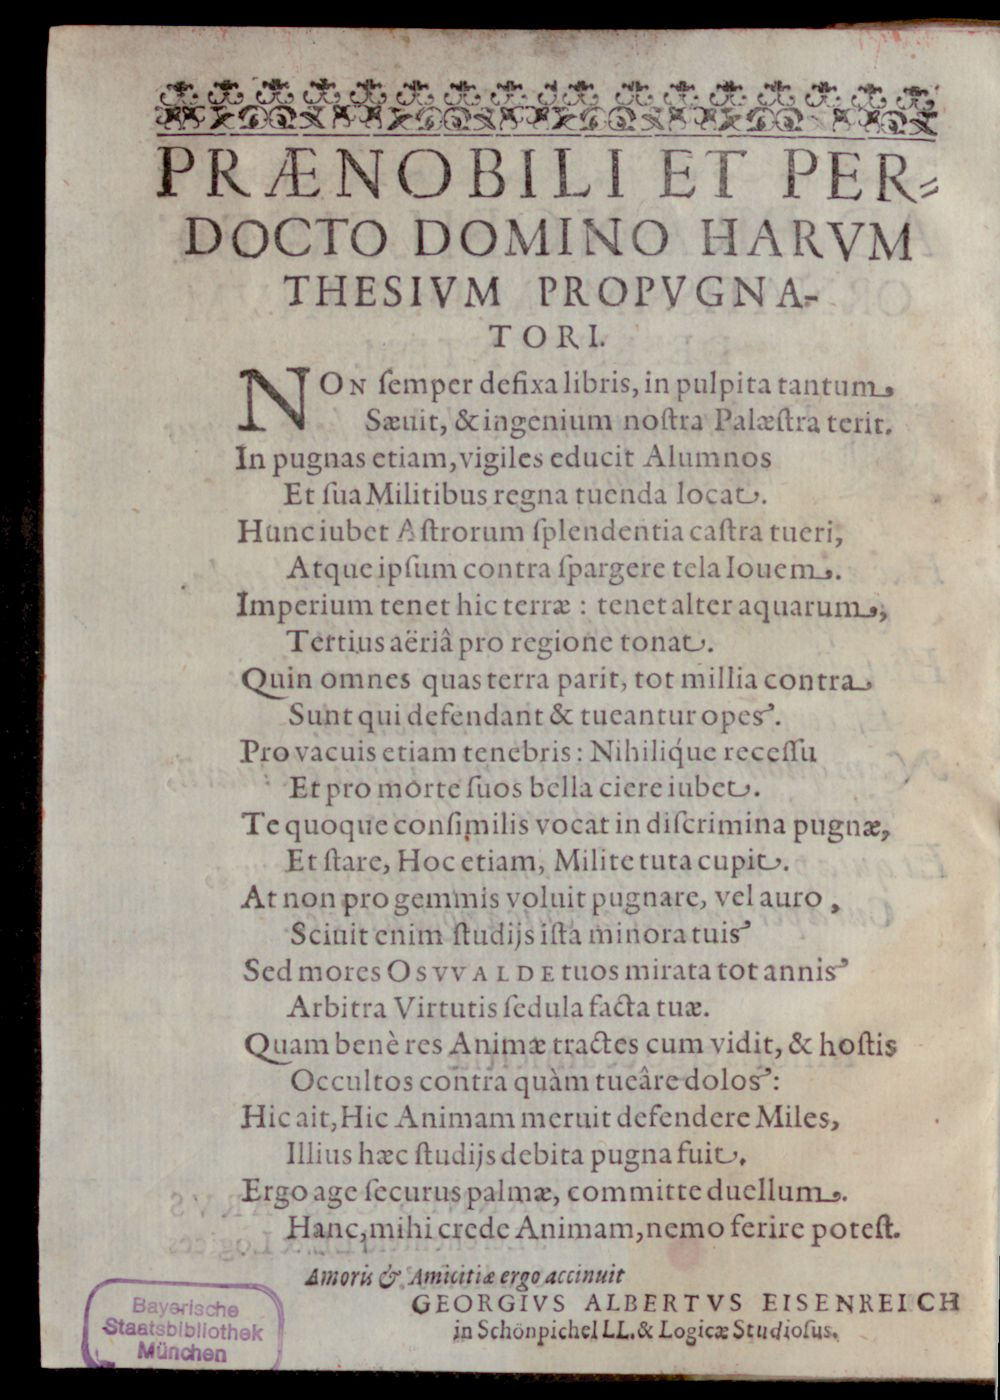 PRÆNOBILI ET PER-
DOCTO DOMINO HARVM
THESIVM PROPVGNA-
TORI.
NON ſemper defixa libris, in pulpita tantum,
Sæuit, & ingenium noſtra Palæſtra terit.
In pugnas etiam, vigiles educit Alumnos
Et ſua Militibus regna tuenda locat.
Hunc iubet Aſtrorum ſplendentia caſtra tueri,
Atque ipſum contra ſpargere tela Iouem.
Imperium tenet hic terræ : tenet alter aquarum,
Tertius aëriâ pro regione tonat.
Quin omnes quas terra parit, tot millia contra
Sunt qui defendant & tueantur opes.
Pro vacuis etiam tenebris : Nihiliq́ue receſſu
Et pro morte ſuos bella ciere iubet.
Te quoque conſimilis vocat in diſcrimina pugnæ,
Et ſtare, Hoc etiam, Milite tuta cupit.
At non pro gemmis voluit pugnare, vel auro,
Sciuit enim ſtudijs iſta minora tuis
Sed mores OSVVALDE tuos mirata tot annis
Arbitra Virtutis ſedula facta tuæ.
Quam benè res Animæ tractes cum vidit, & hoſtis
Occultos contra quàm tueâre dolos:
Hic ait, Hic Animam meruit defendere Miles,
Illius hæc ſtudijs debita pugna fuit.
Ergo age ſecurus palmæ, committe duellum.
Hanc, mihi crede Animam, nemo ferire poteſt.
Amoris & Amicitiæ ergo accinuit
GEORGIVS ALBERTVS EISENREICH
in Schönpichel LL. & Logicæ Studioſus.
Bayerische
Staatsbibliothek
München